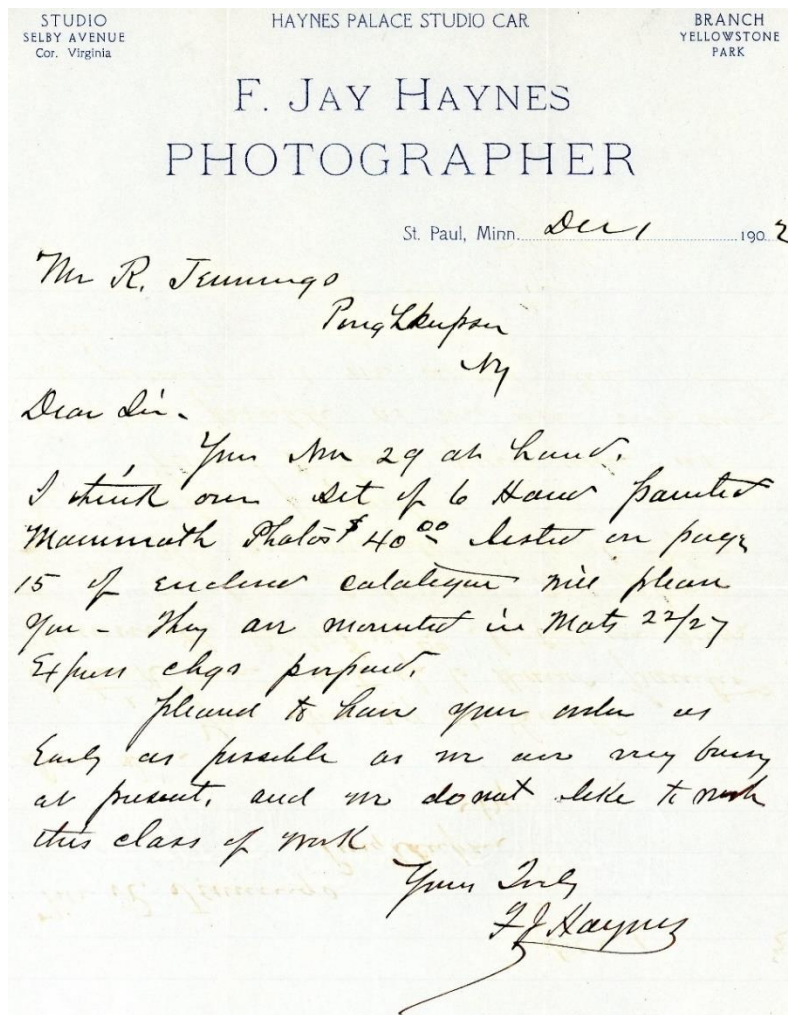 STUDIO
SELBY AVENUE
Cor. Virginia
HAYNES PALACE STUDIO CAR
BRANCH
YELLOWSTONE
PARK
F. JAY HAYNES
PHOTOGRAPHER
St. Paul, Minn. Dec 1 1902
Mr R. Jennings
Poughkeepsie
NY
Dear Sir -
Yours Nov 29 at hand.
I think our set of 6 Hand painted
Mammoth Photos $40 00 listed on page
15 of enclosed catalogue will please
you - They are mounted in Mats 22/27
Express chgs prepaid.
Pleased to have your order as
Early as possible as we are very busy
at present, and we do not like to rush
this class of work
Yours Truly
F J Haynes